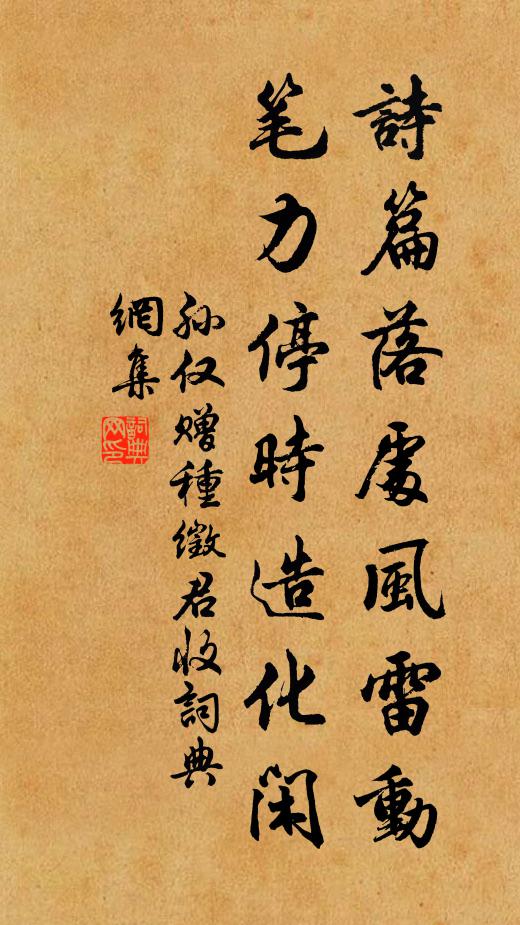 詩篇落處風雷動
笔力停時造化闲
孙仅赠種徵君收詞典
網集
詞典
网印